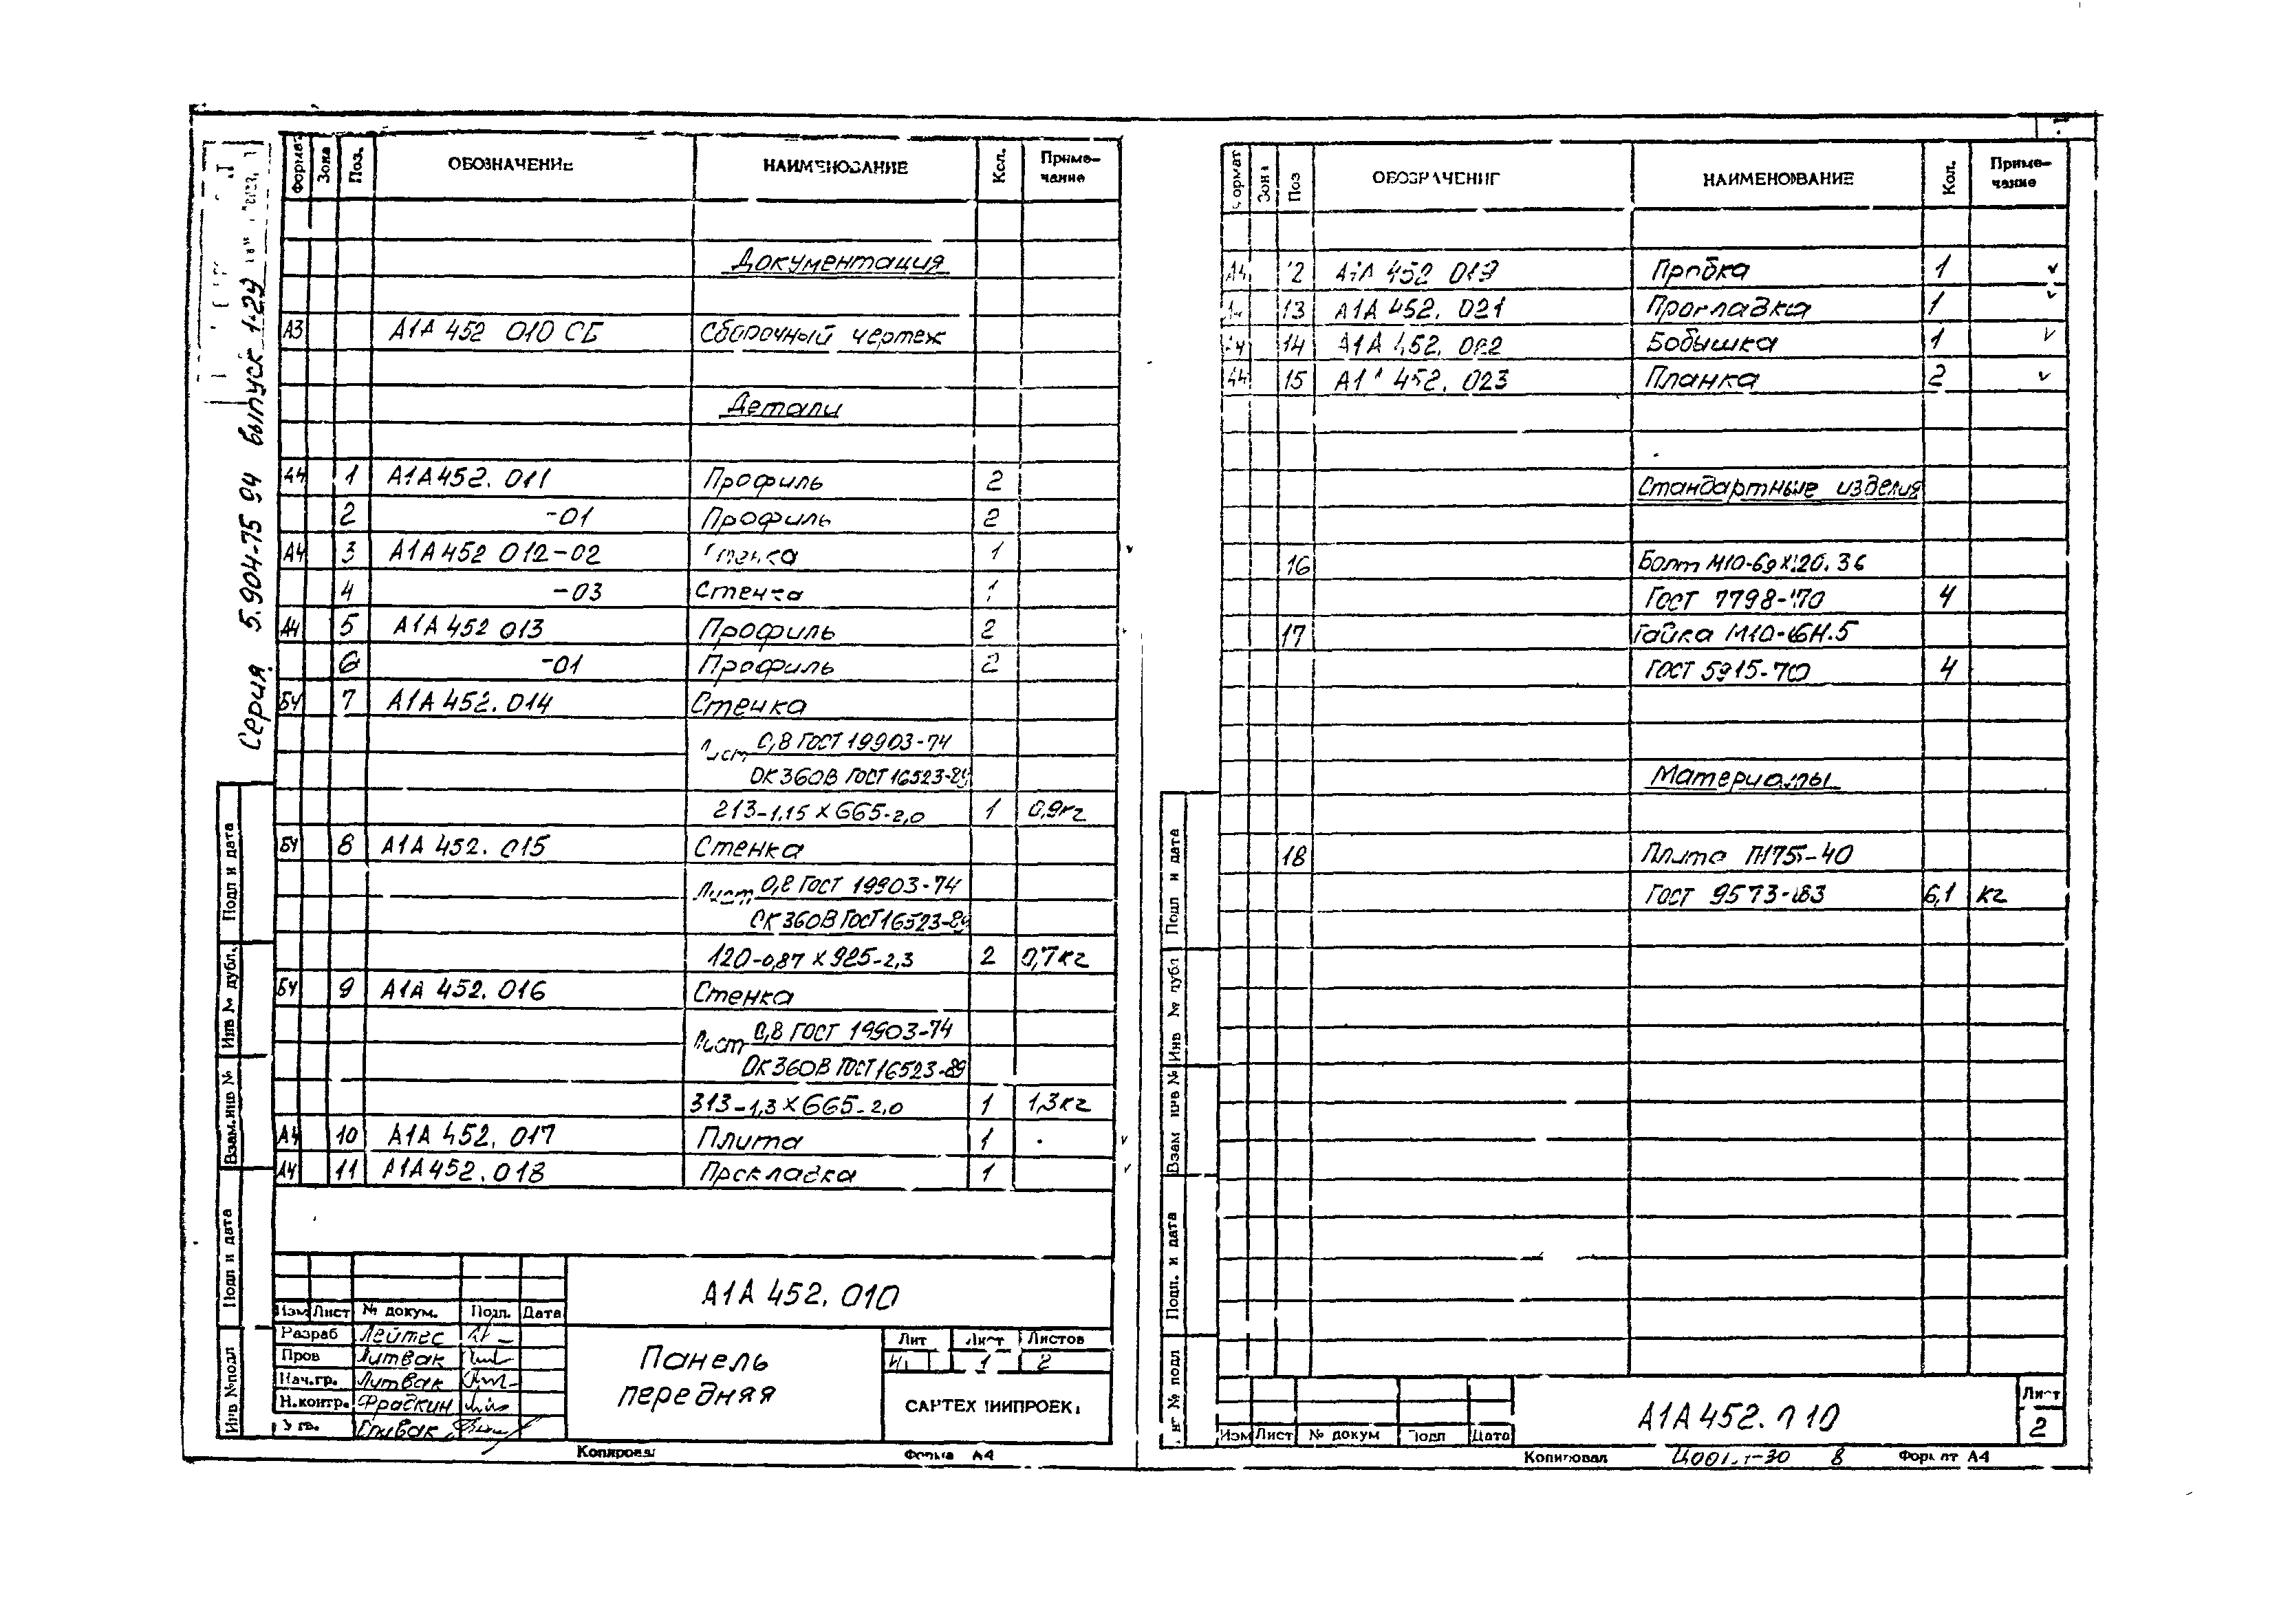 Серия 5.904-75 94 выпуск 1-29
Формат Зона Поз. ОБОЗНАЧЕНИЕ НАИМЕНОВАНИЕ Кол. Приме-
чание
Документация
А3 А1А 452 010 СБ Сборочный чертеж
Детали
А4 1 А1А452. 011 Профиль 2
2 -01 Профиль 2
А4 3 А1А 452 012-02 Стенка 1
4 -03 Стенка 1
А4 5 А1А 452 013 Профиль 2
6 -01 Профиль 2
БЧ 7 А1А 452. 014 Стенка
Лист 0,8 ГОСТ 19903-74
ОК360В ГОСТ 16523-89
213-1,15 х 665-2,0 1 0,9кг
БЧ 8 А1А 452. 015 Стенка
Лист 0,8 ГОСТ 19903-74
ОК360В ГОСТ 16523-89
120-0,87 х 925-2,3 2 0,7кг
БЧ 9 А1А 452. 016 Стенка
Лист 0,8 ГОСТ 19903-74
ОК360В ГОСТ 16523-89
313-1,3 х 665-2,0 1 1,3кг
А4 10 А1А 452. 017 Плита 1
А4 11 А1А 452. 018 Прокладка 1
А1А 452. 010
Изм Лист № докум. Подп. Дата
Разраб Лейтес
Пров Литвак
Нач.гр. Литвак
Н.контр. Фрадкин
Утв. Спивак
Панель
передняя
Лит Лист Листов
1 2
САНТЕХНИИПРОЕКТ
Копировал Формат А4
Подп и дата
Инв № дубл.
Взам.инв №
Подп и дата
Инв №подл
Формат Зона Поз ОБОЗНАЧЕНИЕ НАИМЕНОВАНИЕ Кол. Приме-
чание
А4 12 А1А 452 019 Пробка 1 ✓
А4 13 А1А 452. 021 Прокладка 1 ✓
А4 14 А1А 452. 022 Бобышка 1 ✓
А4 15 А1А 452. 023 Планка 2 ✓
Стандартные изделия
16 Болт М10-6gх20.36
ГОСТ 7798-70 4
17 Гайка М10-6Н.5
ГОСТ 5915-70 4
Материалы
18 Плита П175-40
ГОСТ 9573-83 6,1 кг
Подп и дата
Инв № дубл
Взам инв №
Подп. и дата
Инв № подл
Изм Лист № докум Подп Дата
А1А 452. 010
Лист
2
Копировал 8 Формат А4